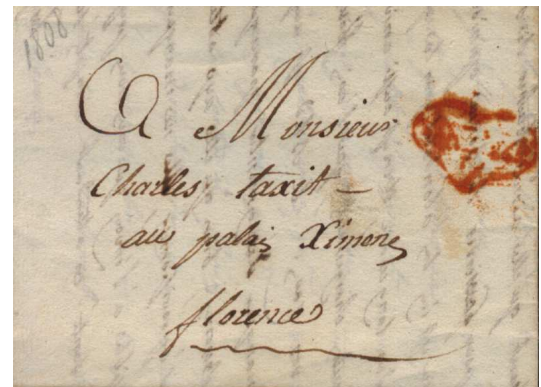 1808
A Monsieur
Charles taxit
au palais Ximenes
florence